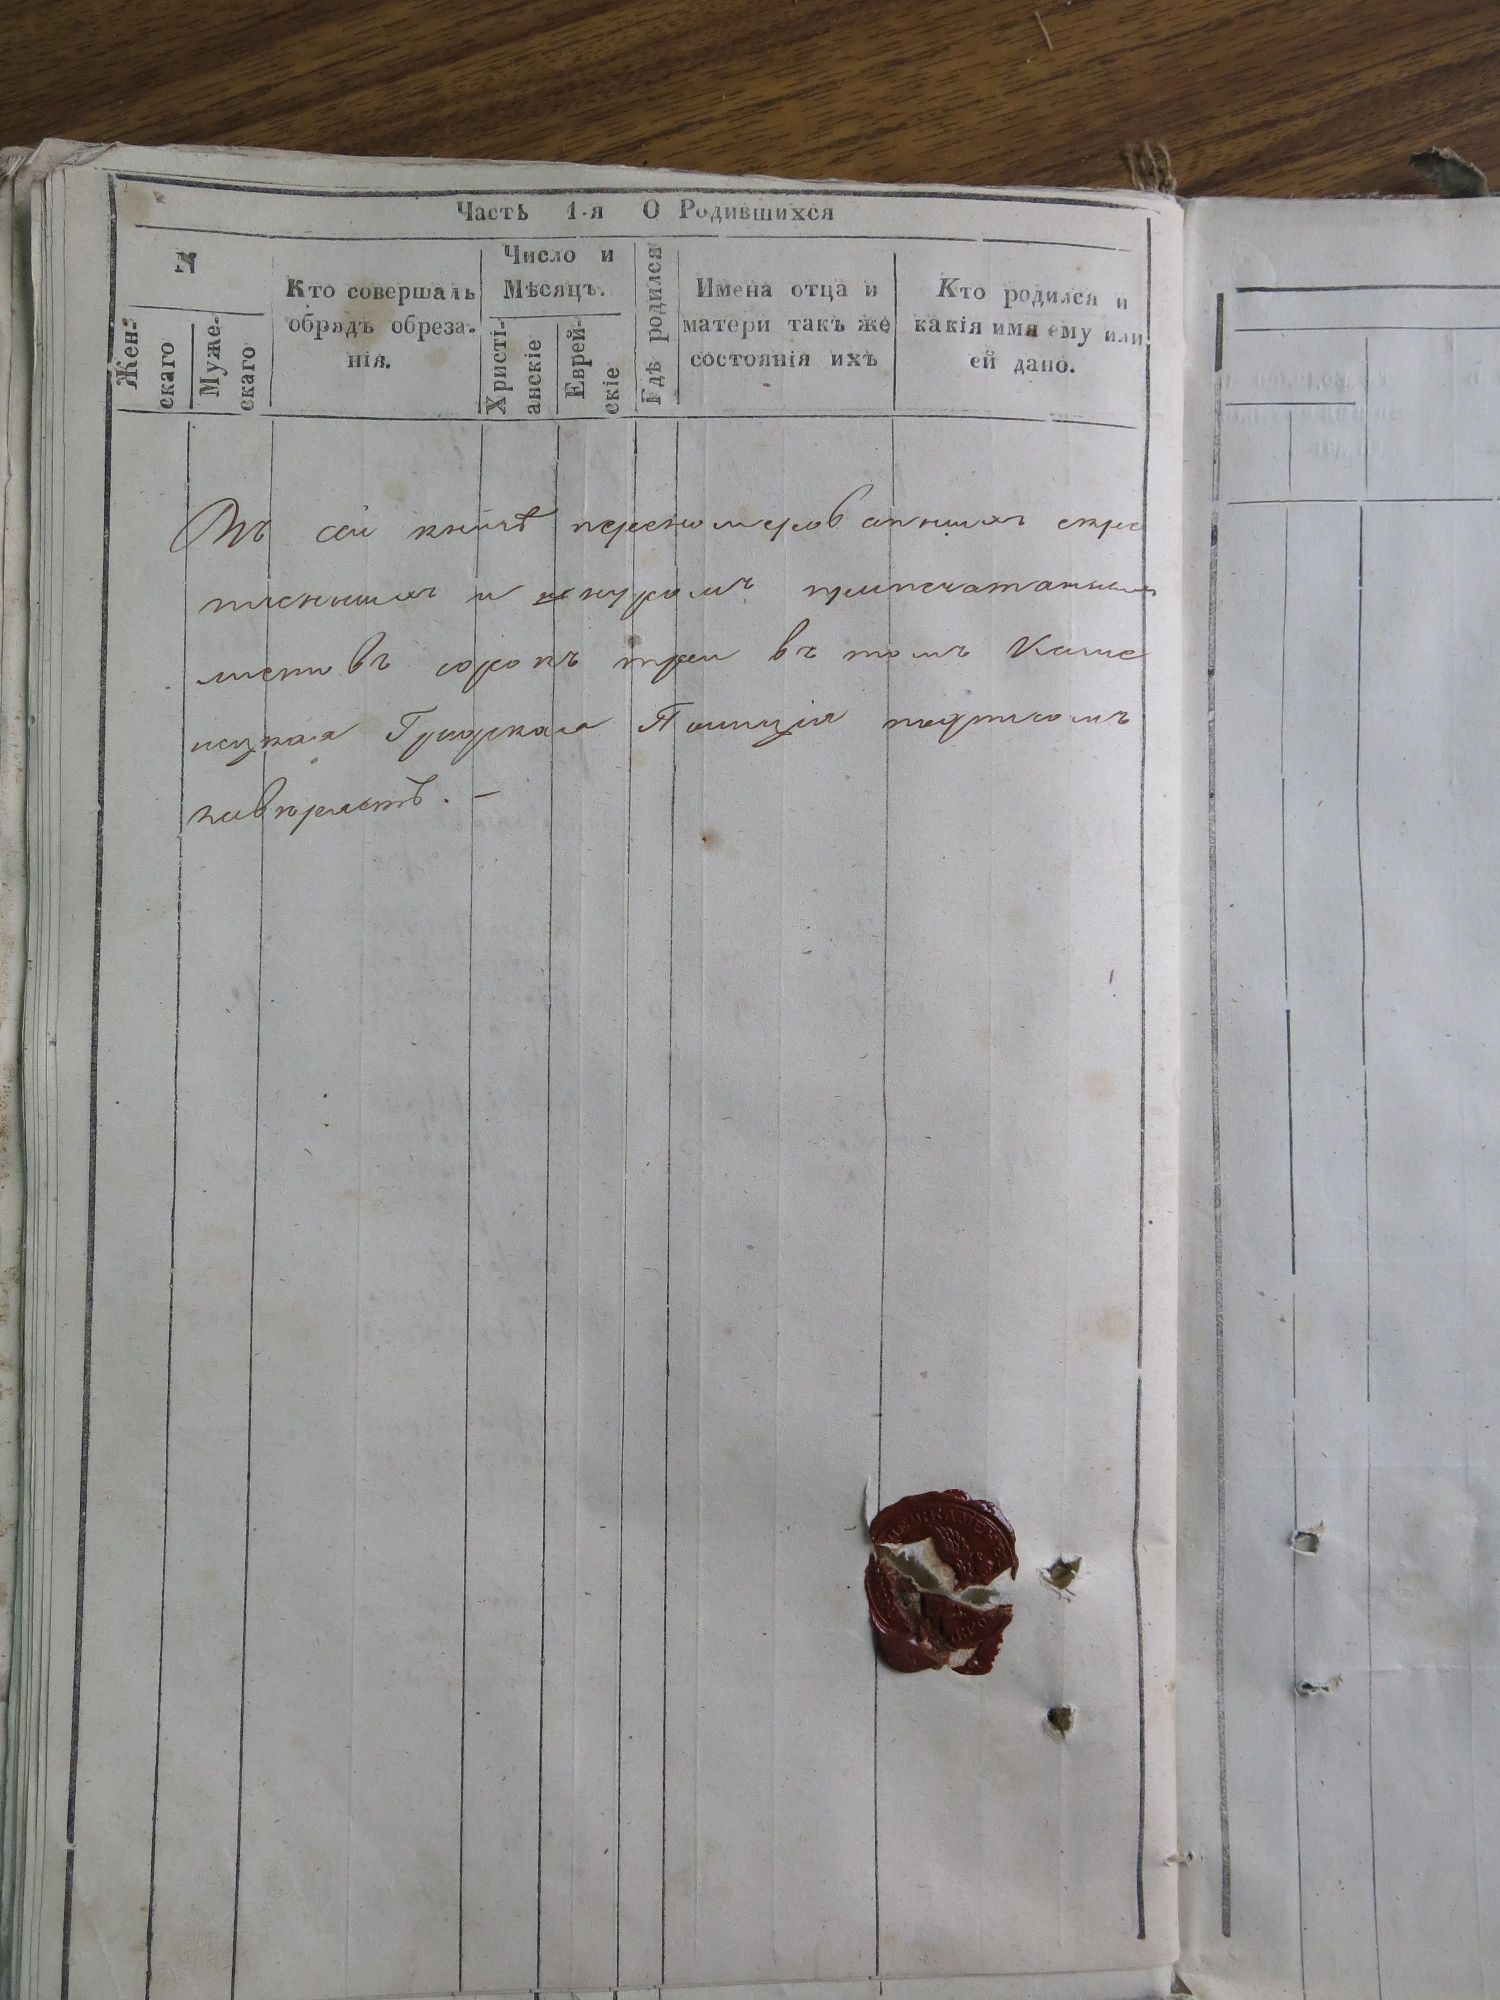 Часть 1-я О Родившихся
№
Жен-
скаго
Муже-
скаго
Кто совершалъ
обрядъ обреза-
нія.
Число и
Мѣсяцъ.
Христі-
анскіе
Еврей-
скіе
Гдѣ родился
Имена отца и
матери такъ же
состоянія ихъ
Кто родился и
какія имя ему или
ей дано.
Въ сей книгѣ перенумерованныхъ скре
пленныхъ и шнуромъ припечатанныхъ
листовъ сорокъ три въ томъ Каме
нецкая Градская Полиція подписомъ